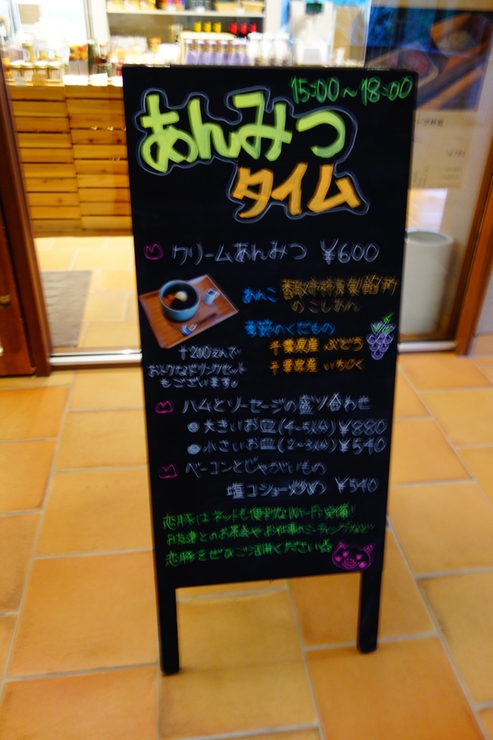 15:00〜18:00
あんみつ
タイム
クリームあんみつ ¥600
あんこ
のこしあん
季節のくだもの
千葉県産 ぶどう
千葉県産 いちじく
+200えんで
おトクなドリンクセット
もございます。
ハムとソーセージの盛り合わせ
大きいお皿(4〜5人分)¥880
小さいお皿(2〜3人分)¥540
ベーコンとじゃがいもの
塩コショー炒め ¥540
恋豚はネットも便利なWi-Fi完備!
お友達とのお茶会やお仕事のミーティングなど
恋豚をぜひご活用ください